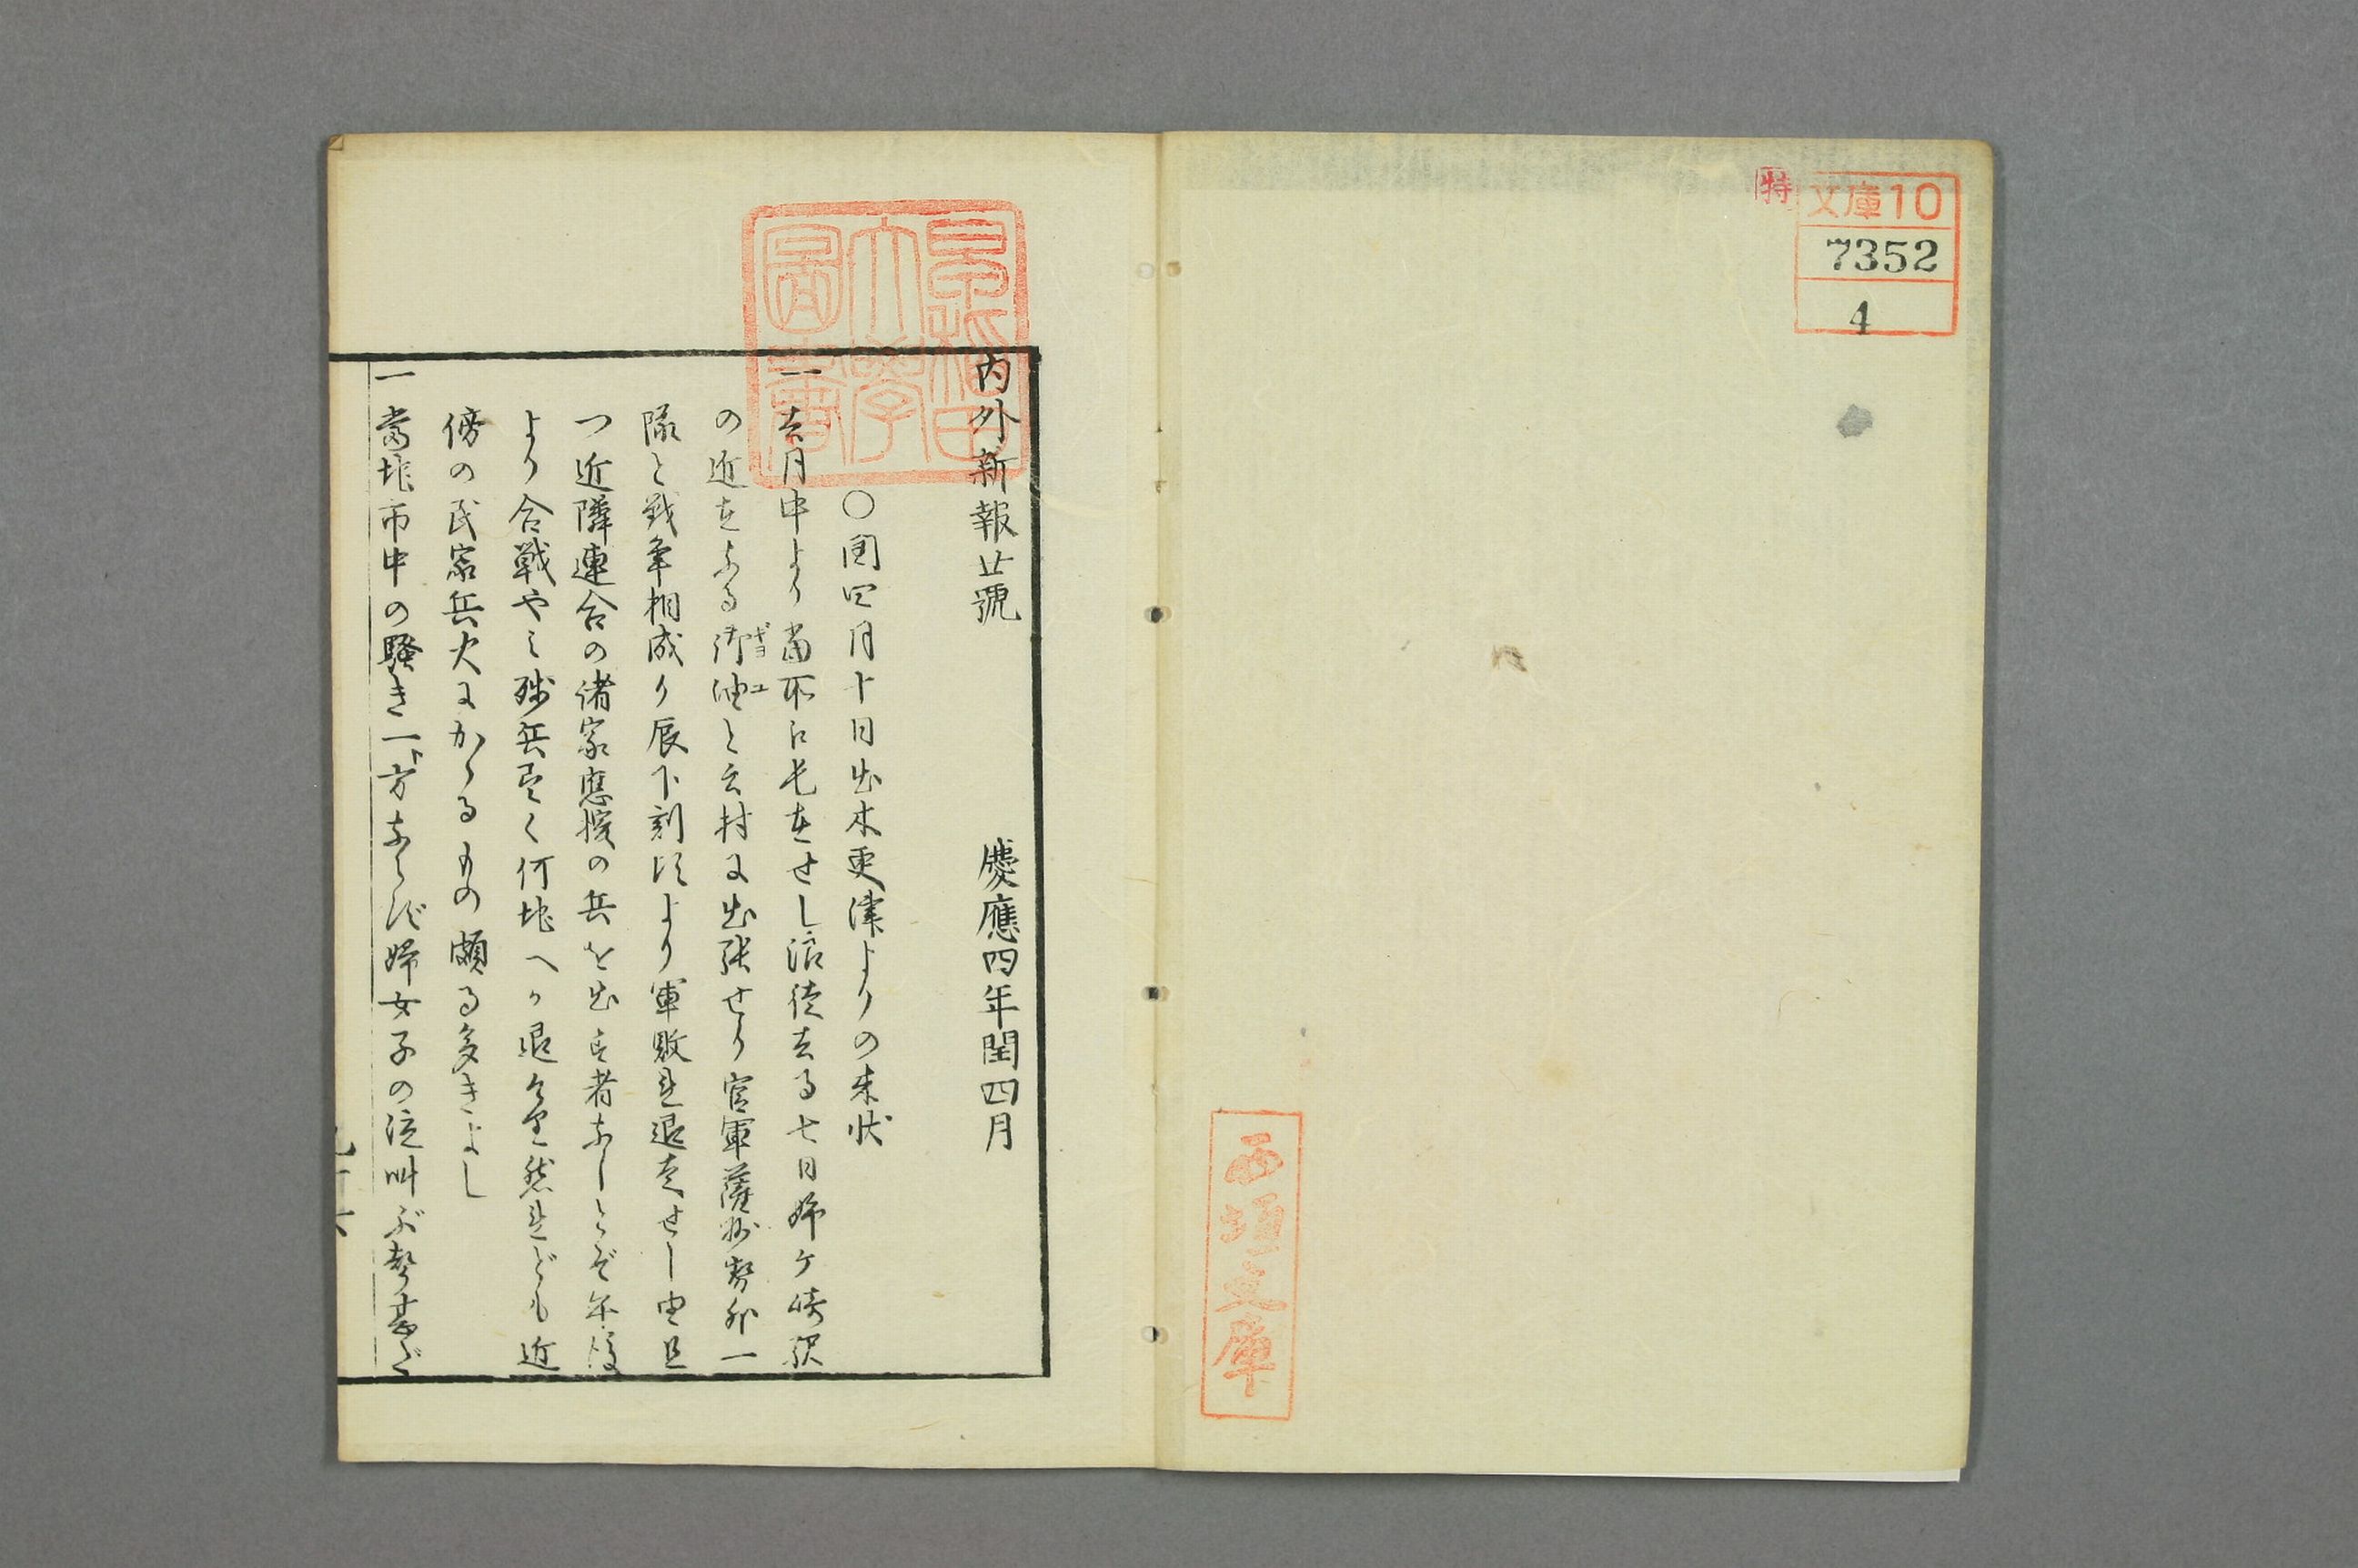 特
文庫10
7352
4
西垣文庫
早稲田大學圖書
内外新報廿號 慶應四年閏四月
○閏四月十日出木更津よりの来状
一去月中より當所に屯在せし浪徒去る七日姉ケ崎駅
の近在なる御油と云村に出張せり官軍薩州勢外一
ギヨユ
隊と戦争相成り辰下刻頃より軍敗れ退走せし由且
つ近隣連合の諸家應援の兵を出す者なしとぞ午後
より合戦やミ残兵悉く何地へか退
然れども近
傍の民家兵火にかゝるもの頗る多きよし
一當地市中の騒き一ト方ならず婦女子の泣叫ぶ聲甚だ
九十六